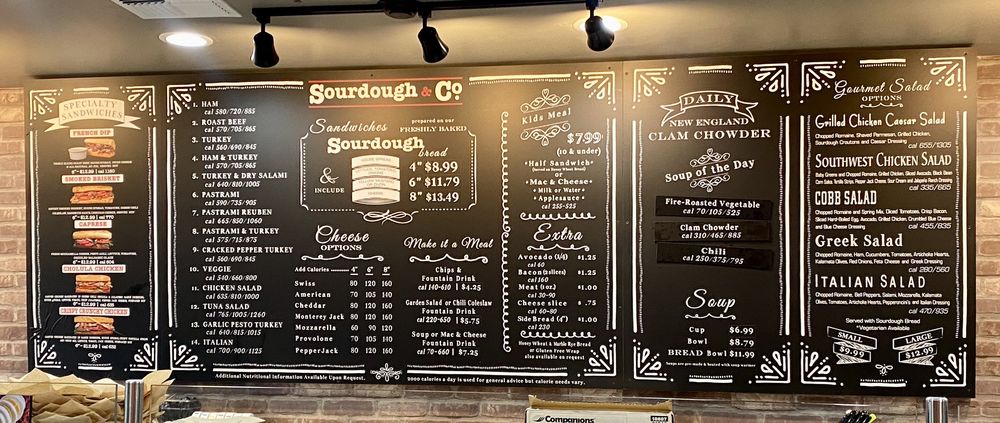 SPECIALTY
SANDWICHES
FRENCH DIP
6" - $12.99 | cal 1160
SMOKED BRISKET
6" - $12.99 | cal 770
CAPRESE
6" - $12.99 | cal 604
CHOLULA CHICKEN
CRISPY CRUNCHY CHICKEN
1. HAM
cal 580/720/885
2. ROAST BEEF
cal 570/705/865
3. TURKEY
cal 560/690/845
4. HAM & TURKEY
cal 570/705/865
5. TURKEY & DRY SALAMI
cal 640/810/1005
6. PASTRAMI
cal 590/735/905
7. PASTRAMI REUBEN
cal 665/850/1060
8. PASTRAMI & TURKEY
cal 575/715/875
9. CRACKED PEPPER TURKEY
cal 560/690/845
10. VEGGIE
cal 540/660/800
11. CHICKEN SALAD
cal 635/810/1000
12. TUNA SALAD
cal 765/1005/1260
13. GARLIC PESTO TURKEY
cal 640/815/1015
14. ITALIAN
cal 700/900/1125
Sourdough & Co.
Sandwiches
prepared on our
FRESHLY BAKED
Sourdough
bread
& INCLUDE
4" $8.99
6" $11.79
8" $13.49
Cheese
OPTIONS
Add Calories 4" 6" 8"
Swiss 80 120 160
American 70 105 140
Cheddar 80 120 160
Monterey Jack 80 120 160
Mozzarella 60 90 120
Provolone 70 105 140
PepperJack 80 120 160
Make it a Meal
Chips &
Fountain Drink
cal 140-610 | $4.25
Garden Salad or Chili Coleslaw
Fountain Drink
cal 220-650 | $5.75
Soup or Mac & Cheese
Fountain Drink
cal 70-660 | $7.25
Additional Nutritional Information Available Upon Request.
2000 calories a day is used for general advice but calorie needs vary.
Kids Meal
$7.99
(10 & under)
•Half Sandwich•
(Served on Honey Wheat Bread)
or
•Mac & Cheese•
• Milk or Water •
• Applesauce •
cal 255-525
Extra
Avocado (1/4) $1.25
cal 60
Bacon (2slices) $1.25
cal 160
Meat (1oz) $1.00
cal 30-90
Cheese slice $ .75
cal 60-80
Side Bread (4") $1.00
cal 230
Honey Wheat & Marble Rye Bread
or Gluten Free Wrap
also available on request
DAILY
NEW ENGLAND
CLAM CHOWDER
Soup of the Day
Fire-Roasted Vegetable
cal 70/105/525
Clam Chowder
cal 310/465/885
Chili
cal 250/375/795
Soup
Cup $6.99
Bowl $8.79
BREAD Bowl $11.99
Soups are pre-made & heated with soup warmer
Gourmet Salad
OPTIONS
Grilled Chicken Caesar Salad
Chopped Romaine, Shaved Parmesan, Grilled Chicken,
Sourdough Croutons and Caesar Dressing
cal 655/1305
SOUTHWEST CHICKEN SALAD
Baby Greens and Chopped Romaine, Grilled Chicken, Sliced Avocado, Black Bean
Corn Salsa, Tortilla Strips, Pepper Jack Cheese, Sour Cream and Jalapeño Ranch Dressing
cal 335/665
COBB SALAD
Chopped Romaine and Spring Mix, Diced Tomatoes, Crisp Bacon,
Sliced Hard-Boiled Egg, Avocado, Grilled Chicken, Crumbled Blue Cheese
and Blue Cheese Dressing
cal 455/835
Greek Salad
Chopped Romaine, Ham, Cucumbers, Tomatoes, Artichoke Hearts,
Kalamata Olives, Red Onions, Feta Cheese and Greek Dressing
cal 280/560
ITALIAN SALAD
Chopped Romaine, Bell Peppers, Salami, Mozzarella, Kalamata
Olives, Tomatoes, Artichoke Hearts, Pepperoncini's and Italian Dressing
cal 470/935
Served with Sourdough Bread
*Vegetarian Available
SMALL
$9.99
LARGE
$12.99
Companions